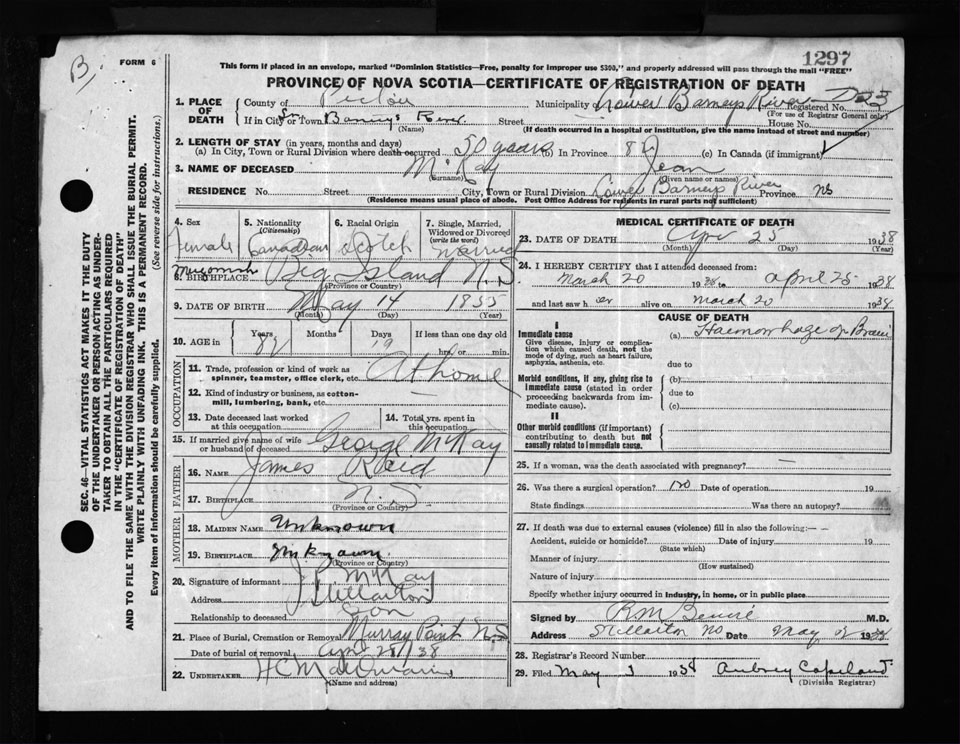 B.
FORM 6
1297
This form if placed in an envelope, marked "Dominion Statistics—Free, penalty for improper use $300," and properly addressed will pass through the mail "FREE"
PROVINCE OF NOVA SCOTIA—CERTIFICATE OF REGISTRATION OF DEATH
1. PLACE OF DEATH
County of Pictou Municipality Lower Barneys River Registered No.
(For use of Registrar General only)
If in City or Town Barneys River Street House No.
(Name) (If death occurred in a hospital or institution, give the name instead of street and number)
2. LENGTH OF STAY (in years, months and days)
(a) In City, Town or Rural Division where death occurred 50 years (b) In Province 82 (c) In Canada (if immigrant)
3. NAME OF DECEASED McKay Jean
(Surname) (Given name or names)
RESIDENCE No. Street City, Town or Rural Division Lower Barneys River Province NS
(Residence means usual place of abode. Post Office Address for residents in rural parts not sufficient)
4. Sex 5. Nationality (Citizenship) 6. Racial Origin 7. Single, Married, Widowed or Divorced (write the word)
Female Canadian Scotch Married
8. BIRTHPLACE Merigomish Big Island N.S
(Province or Country)
9. DATE OF BIRTH May 14 1855
(Month) (Day) (Year)
10. AGE in Years Months Days If less than one day old
82 19 hrs. or min.
OCCUPATION
11. Trade, profession or kind of work as spinner, teamster, office clerk, etc. At home
12. Kind of industry or business, as cotton-mill, lumbering, bank, etc.
13. Date deceased last worked at this occupation 14. Total yrs. spent in this occupation
15. If married give name of wife or husband of deceased George McKay
FATHER
16. NAME James Reid
17. BIRTHPLACE N.S
(Province or Country)
MOTHER
18. MAIDEN NAME Unknown
19. BIRTHPLACE Unknown
(Province or Country)
20. Signature of informant J P McKay
Address Stellarton
Relationship to deceased Son
21. Place of Burial, Cremation or Removal Murray Point N.S
Date of burial or removal April 28/38
22. UNDERTAKER H C
(Name and address)
MEDICAL CERTIFICATE OF DEATH
23. DATE OF DEATH Apr 25 1938
(Month) (Day) (Year)
24. I HEREBY CERTIFY that I attended deceased from:
March 20 1938 to April 25 1938
and last saw her alive on March 20 1938
CAUSE OF DEATH
I
Immediate cause (a) Haemorrhage of Brain
Give disease, injury or complication which caused death, not the mode of dying, such as heart failure, asphyxia, asthenia, etc.
due to
Morbid conditions, if any, giving rise to immediate cause (stated in order proceeding backwards from immediate cause).
(b)
due to
(c)
II
Other morbid conditions (if important) contributing to death but not causally related to immediate cause.
25. If a woman, was the death associated with pregnancy? —
26. Was there a surgical operation? no Date of operation 19
State findings Was there an autopsy?
27. If death was due to external causes (violence) fill in also the following:—
Accident, suicide or homicide? Date of injury 19
(State which)
Manner of injury
(How sustained)
Nature of injury
Specify whether injury occurred in industry, in home, or in public place
Signed by R M Benvie M.D.
Address Stellarton NS Date May 2 1938
28. Registrar's Record Number
29. Filed May 3 1938 Aubrey Copeland
(Division Registrar)
SEC. 46—VITAL STATISTICS ACT MAKES IT THE DUTY
OF THE UNDERTAKER OR PERSON ACTING AS UNDER-
TAKER TO OBTAIN ALL THE PARTICULARS REQUIRED
IN THE "CERTIFICATE OF REGISTRATION OF DEATH"
AND TO FILE THE SAME WITH THE DIVISION REGISTRAR WHO SHALL ISSUE THE BURIAL PERMIT.
WRITE PLAINLY WITH UNFADING INK. THIS IS A PERMANENT RECORD.
Every item of Information should be carefully supplied. (See reverse side for instructions.)